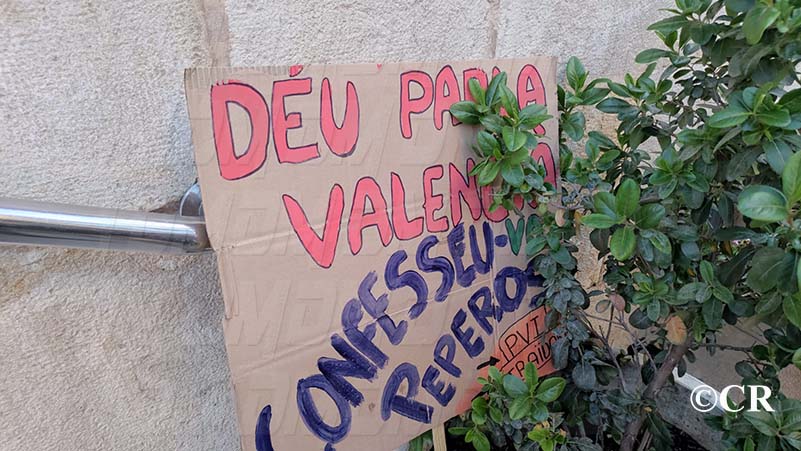 DÉU PARLA
VALENCIÀ
CONFESSEU-VOS
PEPEROS
PVT
©CR